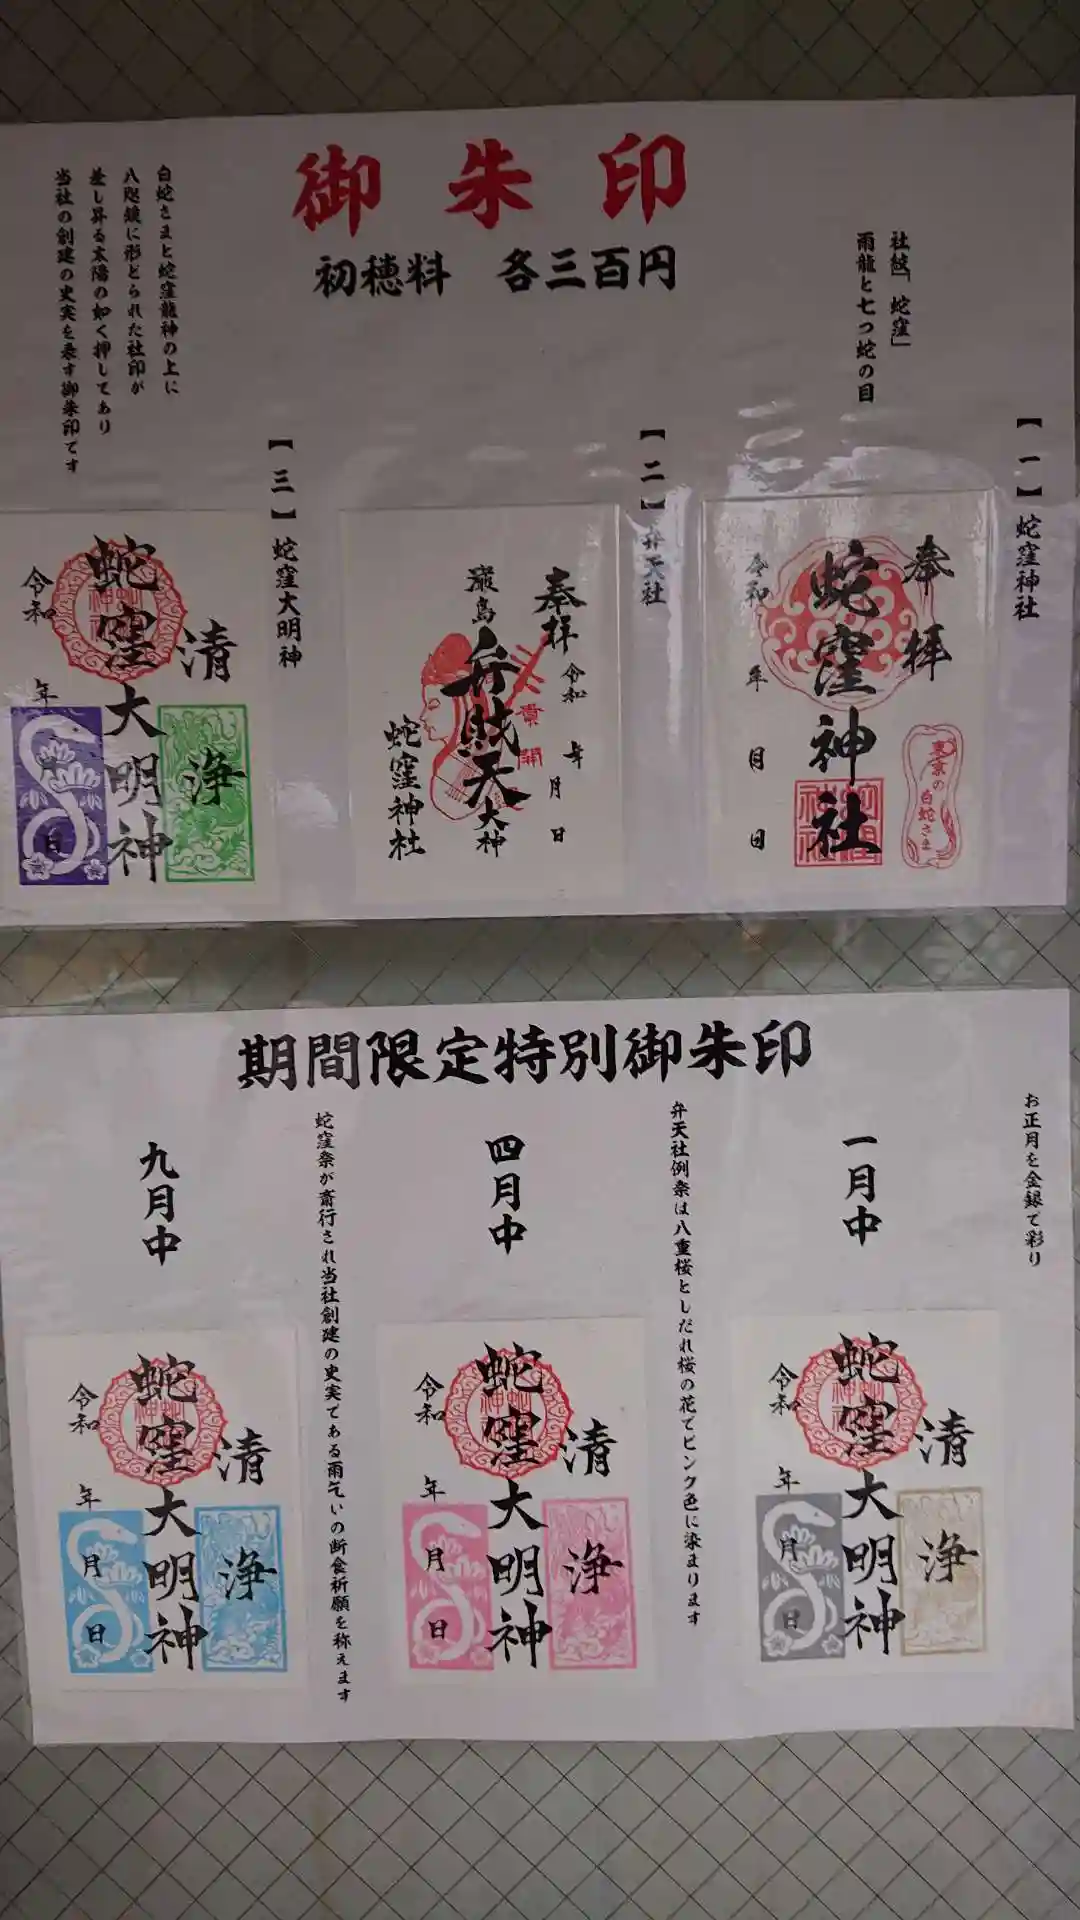 御朱印
初穂料 各三百円
社紋「蛇窪」
雨龍と七つ蛇の目
【一】蛇窪神社
奉拝
蛇窪神社
令和 年 月 日
東京の白蛇さま
【二】弁天社
奉拝
令和 年 月 日
厳島
弁財天大神
蛇窪神社
【三】蛇窪大明神
白蛇さまと蛇窪龍神の上に
八咫鏡に形どられた社印が
差し昇る太陽の如く押してあり
当社の創建の史実を表す御朱印です
清浄
蛇窪大明神
令和 年 月 日
期間限定特別御朱印
お正月を金銀で彩り
一月中
清浄
蛇窪大明神
令和 年 月 日
弁天社例祭は八重桜としだれ桜の花でピンク色に染まります
四月中
清浄
蛇窪大明神
令和 年 月 日
蛇窪祭が斎行され当社創建の史実である雨乞いの断食祈願を称えます
九月中
清浄
蛇窪大明神
令和 年 月 日